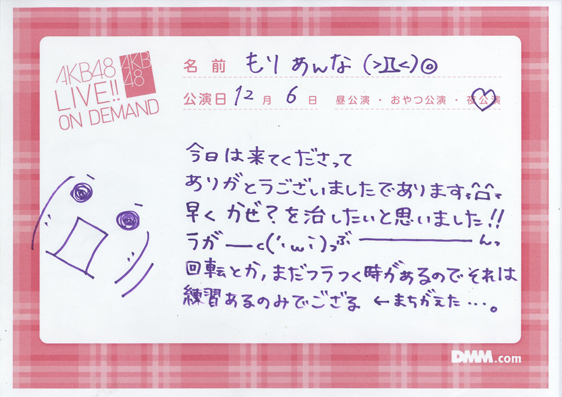 AKB48
LIVE!!
ON DEMAND
AKB
48
名前 もり あんな (>Д<)◎
公演日 12月 6日 昼公演・おやつ公演・夜公演
今日は来てくださって
ありがとうございましたであります
早く かぜ?を治したいと思いました!!
うがーーc('・ω・`)っぶーーーーーんっ
回転とか、まだフラつく時があるのでそれは
練習あるのみでござる ←まちがえた…。
DMM.com